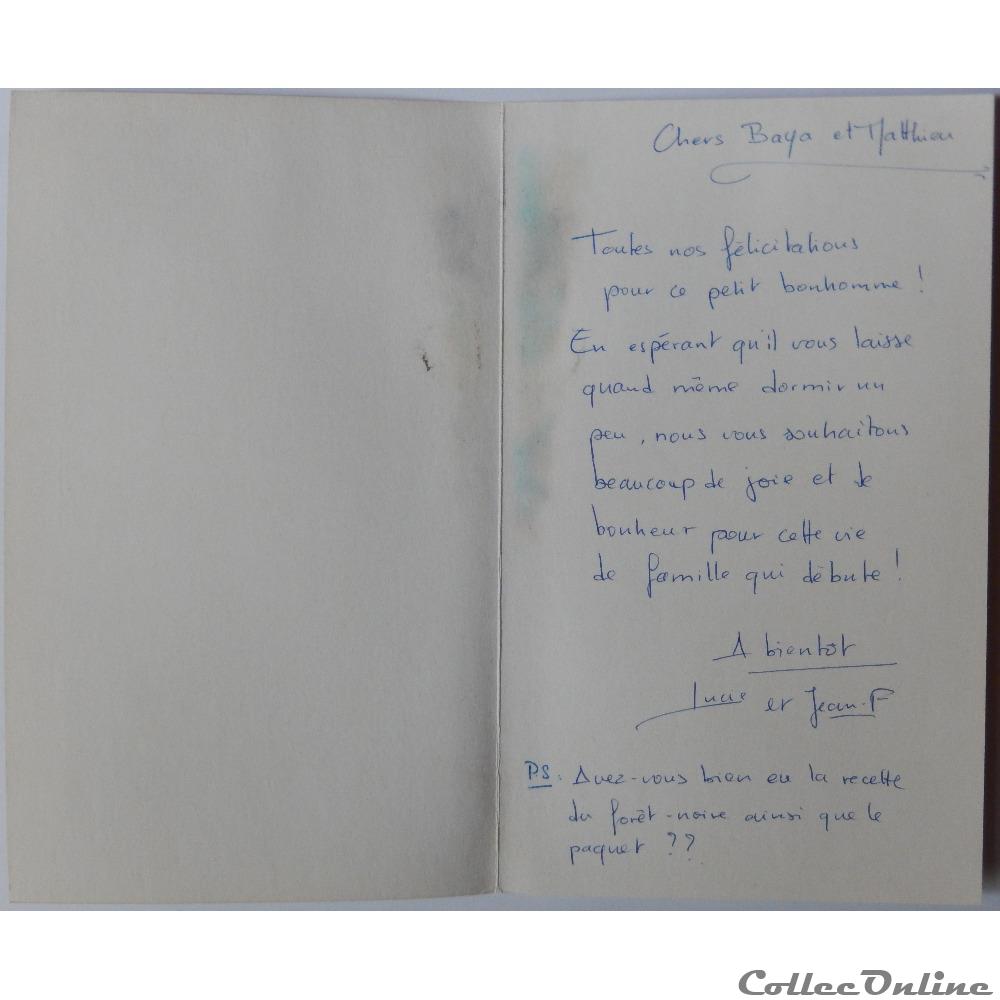 Chers Baya et Matthieu
Toutes nos félicitations
pour ce petit bonhomme !
En espérant qu'il vous laisse
quand même dormir un
peu, nous vous souhaitons
beaucoup de joie et de
bonheur pour cette vie
de famille qui débute !
A bientôt
Lucie et Jean-F
PS : Avez-vous bien eu la recette
du forêt-noire ainsi que le
paquet ??
CollecOnline